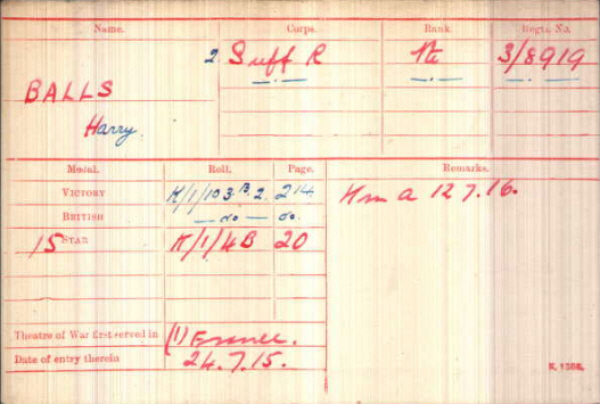 Name. Corps. Rank. Regtl. No.
2. Suff R Pte 3/8919
BALLS — . — — . — — . —
Harry.
Medal. Roll. Page. Remarks.
VICTORY K/1/103.B.2. 214
BRITISH — do — do.
15 STAR K/1/4B 20
K in a 12.7.16.
Theatre of War first served in (1) France.
Date of entry therein 24.7.15.
K. 1380.